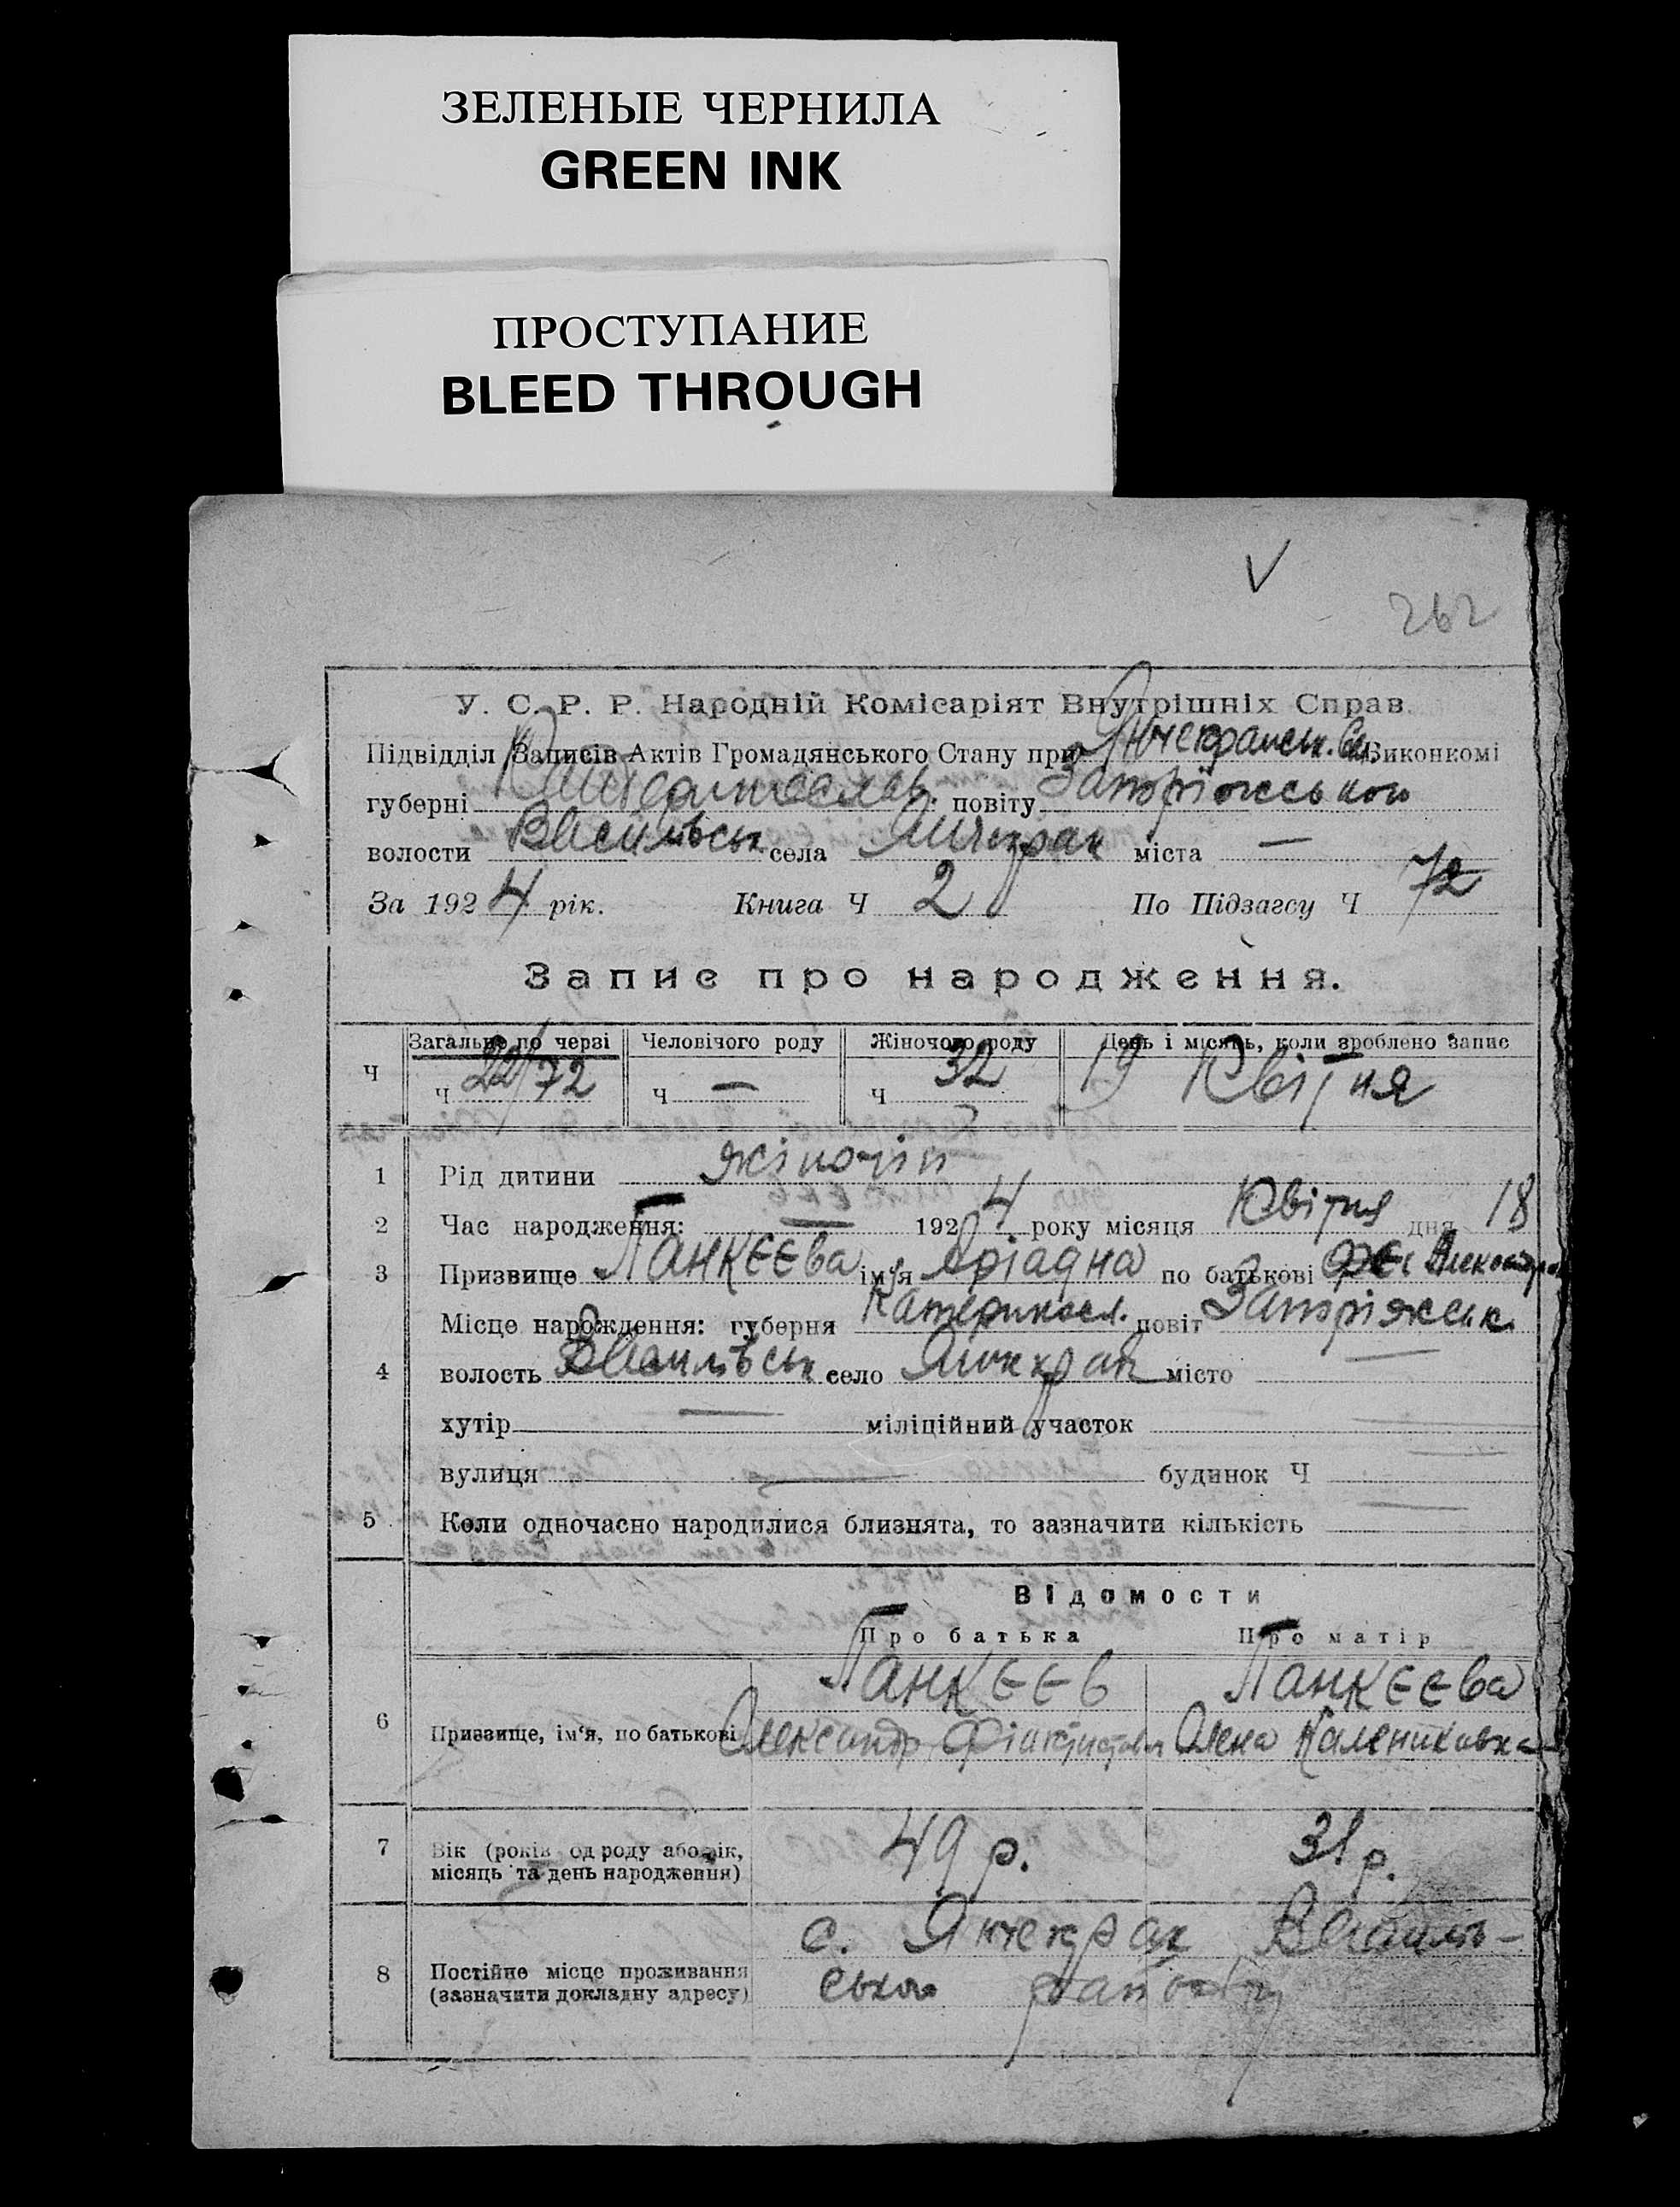 ЗЕЛЕНЫЕ ЧЕРНИЛА
GREEN INK
ПРОСТУПАНИЕ
BLEED THROUGH
V
262
У. С. Р. Р. Народній Комісаріят Внутрішніх Справ.
Підвідділ Записів Актів Громадянського Стану при Янчекрацьк. Виконкомі
губерні повіту Запоріжського
волости Василівськ села Янчекрак міста —
За 1924 рік. Книга Ч 2 По Підзагсу Ч 72
Запис про народження.
Загальне по черзі Человічого роду Жіночого роду День і місяць, коли зроблено запис
Ч ч 22/72 ч — ч 32 19 Квітня
1 Рід дитини жіночій
2 Час народження: — 1924 року місяця Квітня дня 18
3 Призвище Панкєєва ім'я Аріадна по батькові
Місце нарождення: губерня Катериносл. повіт Запоріжськ.
4 волость Василівськ село Янчекрак місто —
хутір — міліційний участок
вулиця — будинок Ч
5 Коли одночасно народилися близнята, то зазначити кількість —
Відомости
Про батька Про матір
Панкєєв Панкєєва
6 Призвище, ім'я, по батькові Олександр Олена Калениковна
7 Вік (років од роду або рік, 49 р. 31 р.
місяць та день народження)
с. Янчекрак Василів-
8 Постійне місце проживання ського району
(зазначити докладну адресу)